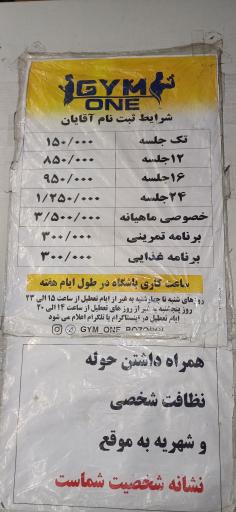 GYM
ONE
شرایط ثبت نام آقایان
تک جلسه ۱۵۰/۰۰۰
۱۲جلسه ۸۵۰/۰۰۰
۱۶جلسه ۹۵۰/۰۰۰
۲۴جلسه ۱/۲۵۰/۰۰۰
خصوصی ماهیانه ۳/۵۰۰/۰۰۰
برنامه تمرینی ۳۰۰/۰۰۰
برنامه غذایی ۳۰۰/۰۰۰
ساعت کاری باشگاه در طول ایام هفته
روزهای شنبه تا چهارشنبه به غیر از ایام تعطیل از ساعت ۱۵ الی ۲۳
روز پنجشنبه به غیر از روزهای تعطیل از ساعت ۱۴ الی ۲۰
ایام تعطیل در اینستاگرام یا تلگرام اعلام می شود
GYM_ONE
همراه داشتن حوله
نظافت شخصی
و شهریه به موقع
نشانه شخصیت شماست